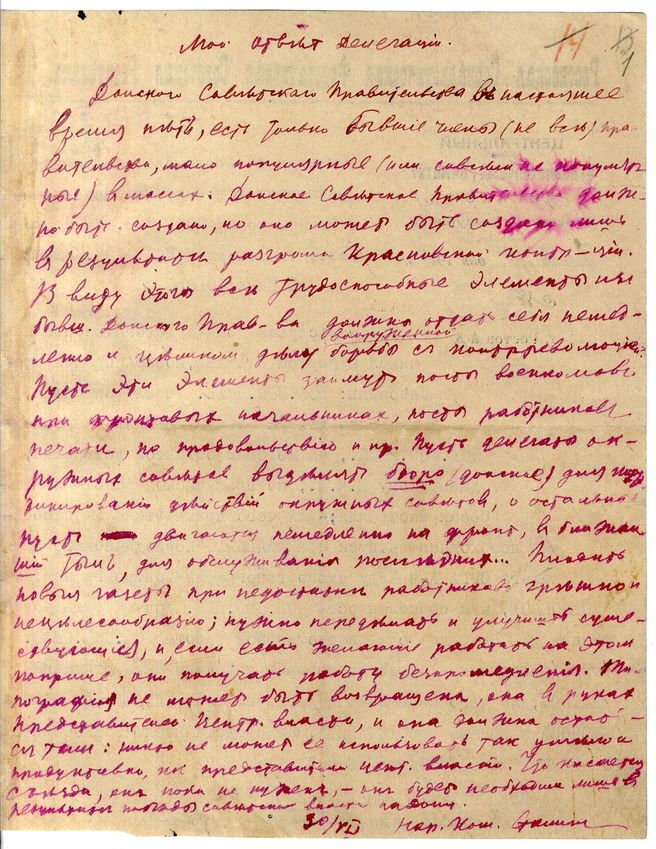 14 1
Мой ответ делегации.
Донского Советского Правительства в настоящее
время нѣтъ, есть только бывшие члены (не все) пра-
вительства, мало популярные (или совсем не популяр-
ные) в массах. Донское Советское Правительство долж-
но быть создано, но оно может быть создано лишь
в результате разгрома Красновской контр-ции.
В виду этого все трудоспособные элементы из
бывш. Донского Прав-ва должно отдать себя немед-
вооруженной
ленно и целиком делу борьбы съ контрреволюцией.
Пусть эти элементы займут посты военкомов
при фронтовых начальниках, посты работников
печати, по продовольствию и пр. Пусть делегаты ок-
ружных советов выделят бюро (донское) для коор-
динирования действий окружных советов, а остальные
пусть двигаются немедленно на фронт, в ближай-
ший тыл, для обслуживания последних... Плодить
новыя газеты при недостатке работников грешно и
нецелесообразно; нужно переделать и улучшить суще-
ствующие, и если есть желающие работать на этом
поприще, они получат работу без промедления. Ти-
пография не может быть возвращена, она в руках
представителей центр. власти, и она должна остать-
ся там: никто не может ее использовать так умело и
продуктивно, как представители цент. власти. Что касается
съезда, он пока не нужен, – он будет необходим лишь в
результате победы советской власти на Дону.
30/VII Нар. Ком. Сталин